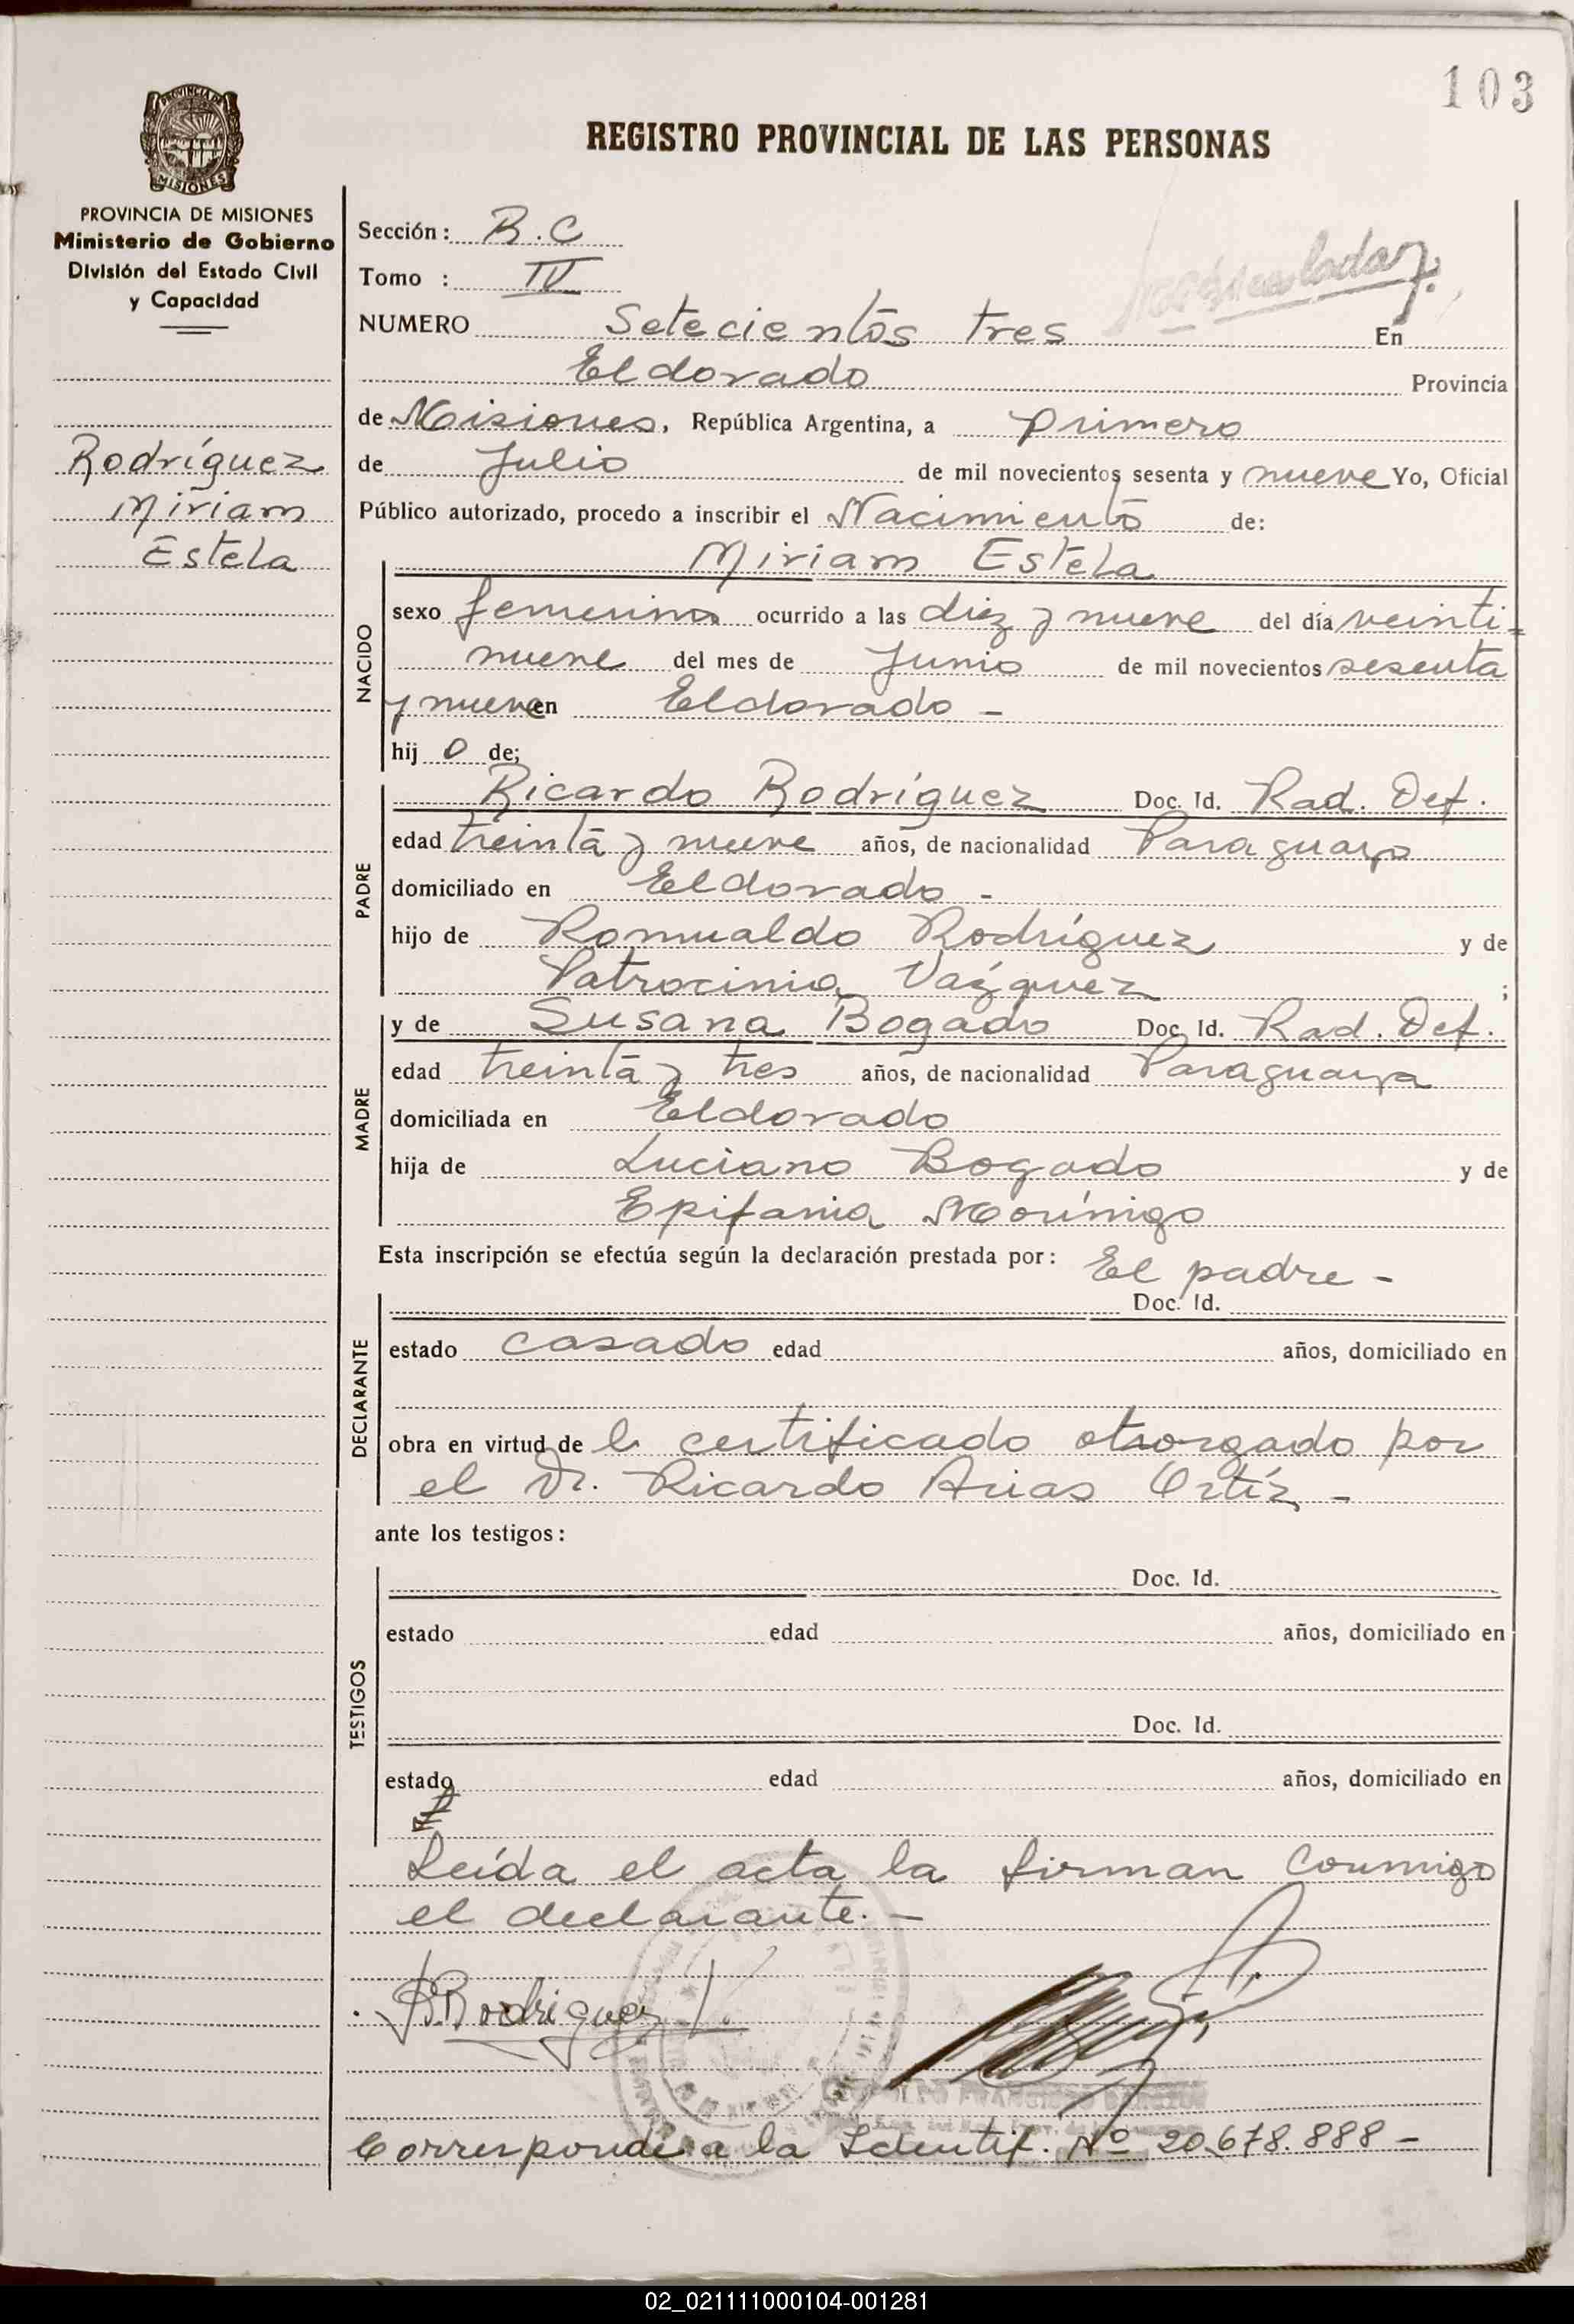 103
REGISTRO PROVINCIAL DE LAS PERSONAS
PROVINCIA DE MISIONES
PROVINCIA DE MISIONES
Ministerio de Gobierno
División del Estado Civil
y Capacidad
Rodríguez
Miriam
Estela
Sección: R.C
Tomo : IV
NUMERO Setecientos tres En
Eldorado Provincia
de Misiones, República Argentina, a primero
de Julio de mil novecientos sesenta y nueve Yo, Oficial
Público autorizado, procedo a inscribir el Nacimiento de:
Miriam Estela
NACIDO
sexo femenino ocurrido a las diez y nueve del día veinti=
nueve del mes de Junio de mil novecientos sesenta
y nueve en Eldorado -
hij o de;
PADRE
Ricardo Rodríguez Doc. Id. Rad. Def.
edad treinta y nueve años, de nacionalidad Paraguayo
domiciliado en Eldorado -
hijo de Romualdo Rodríguez y de
Patrocinia Vázquez ;
MADRE
y de Susana Bogado Doc. Id. Rad. Def.
edad treinta y tres años, de nacionalidad Paraguaya
domiciliada en Eldorado
hija de Luciano Bogado y de
Epifania Morínigo
Esta inscripción se efectúa según la declaración prestada por: El padre -
DECLARANTE
Doc. Id.
estado casado edad años, domiciliado en
obra en virtud de l certificado otsorgado por
el Dr. Ricardo Arias Ortíz -
ante los testigos:
TESTIGOS
Doc. Id.
estado edad años, domiciliado en
Doc. Id.
estado edad años, domiciliado en
Leída el acta la firman conmigo
el declarante. -
R. Rodriguez V.
Corresponde a la Identif. Nº 20.678.888 -
02_021111000104-001281